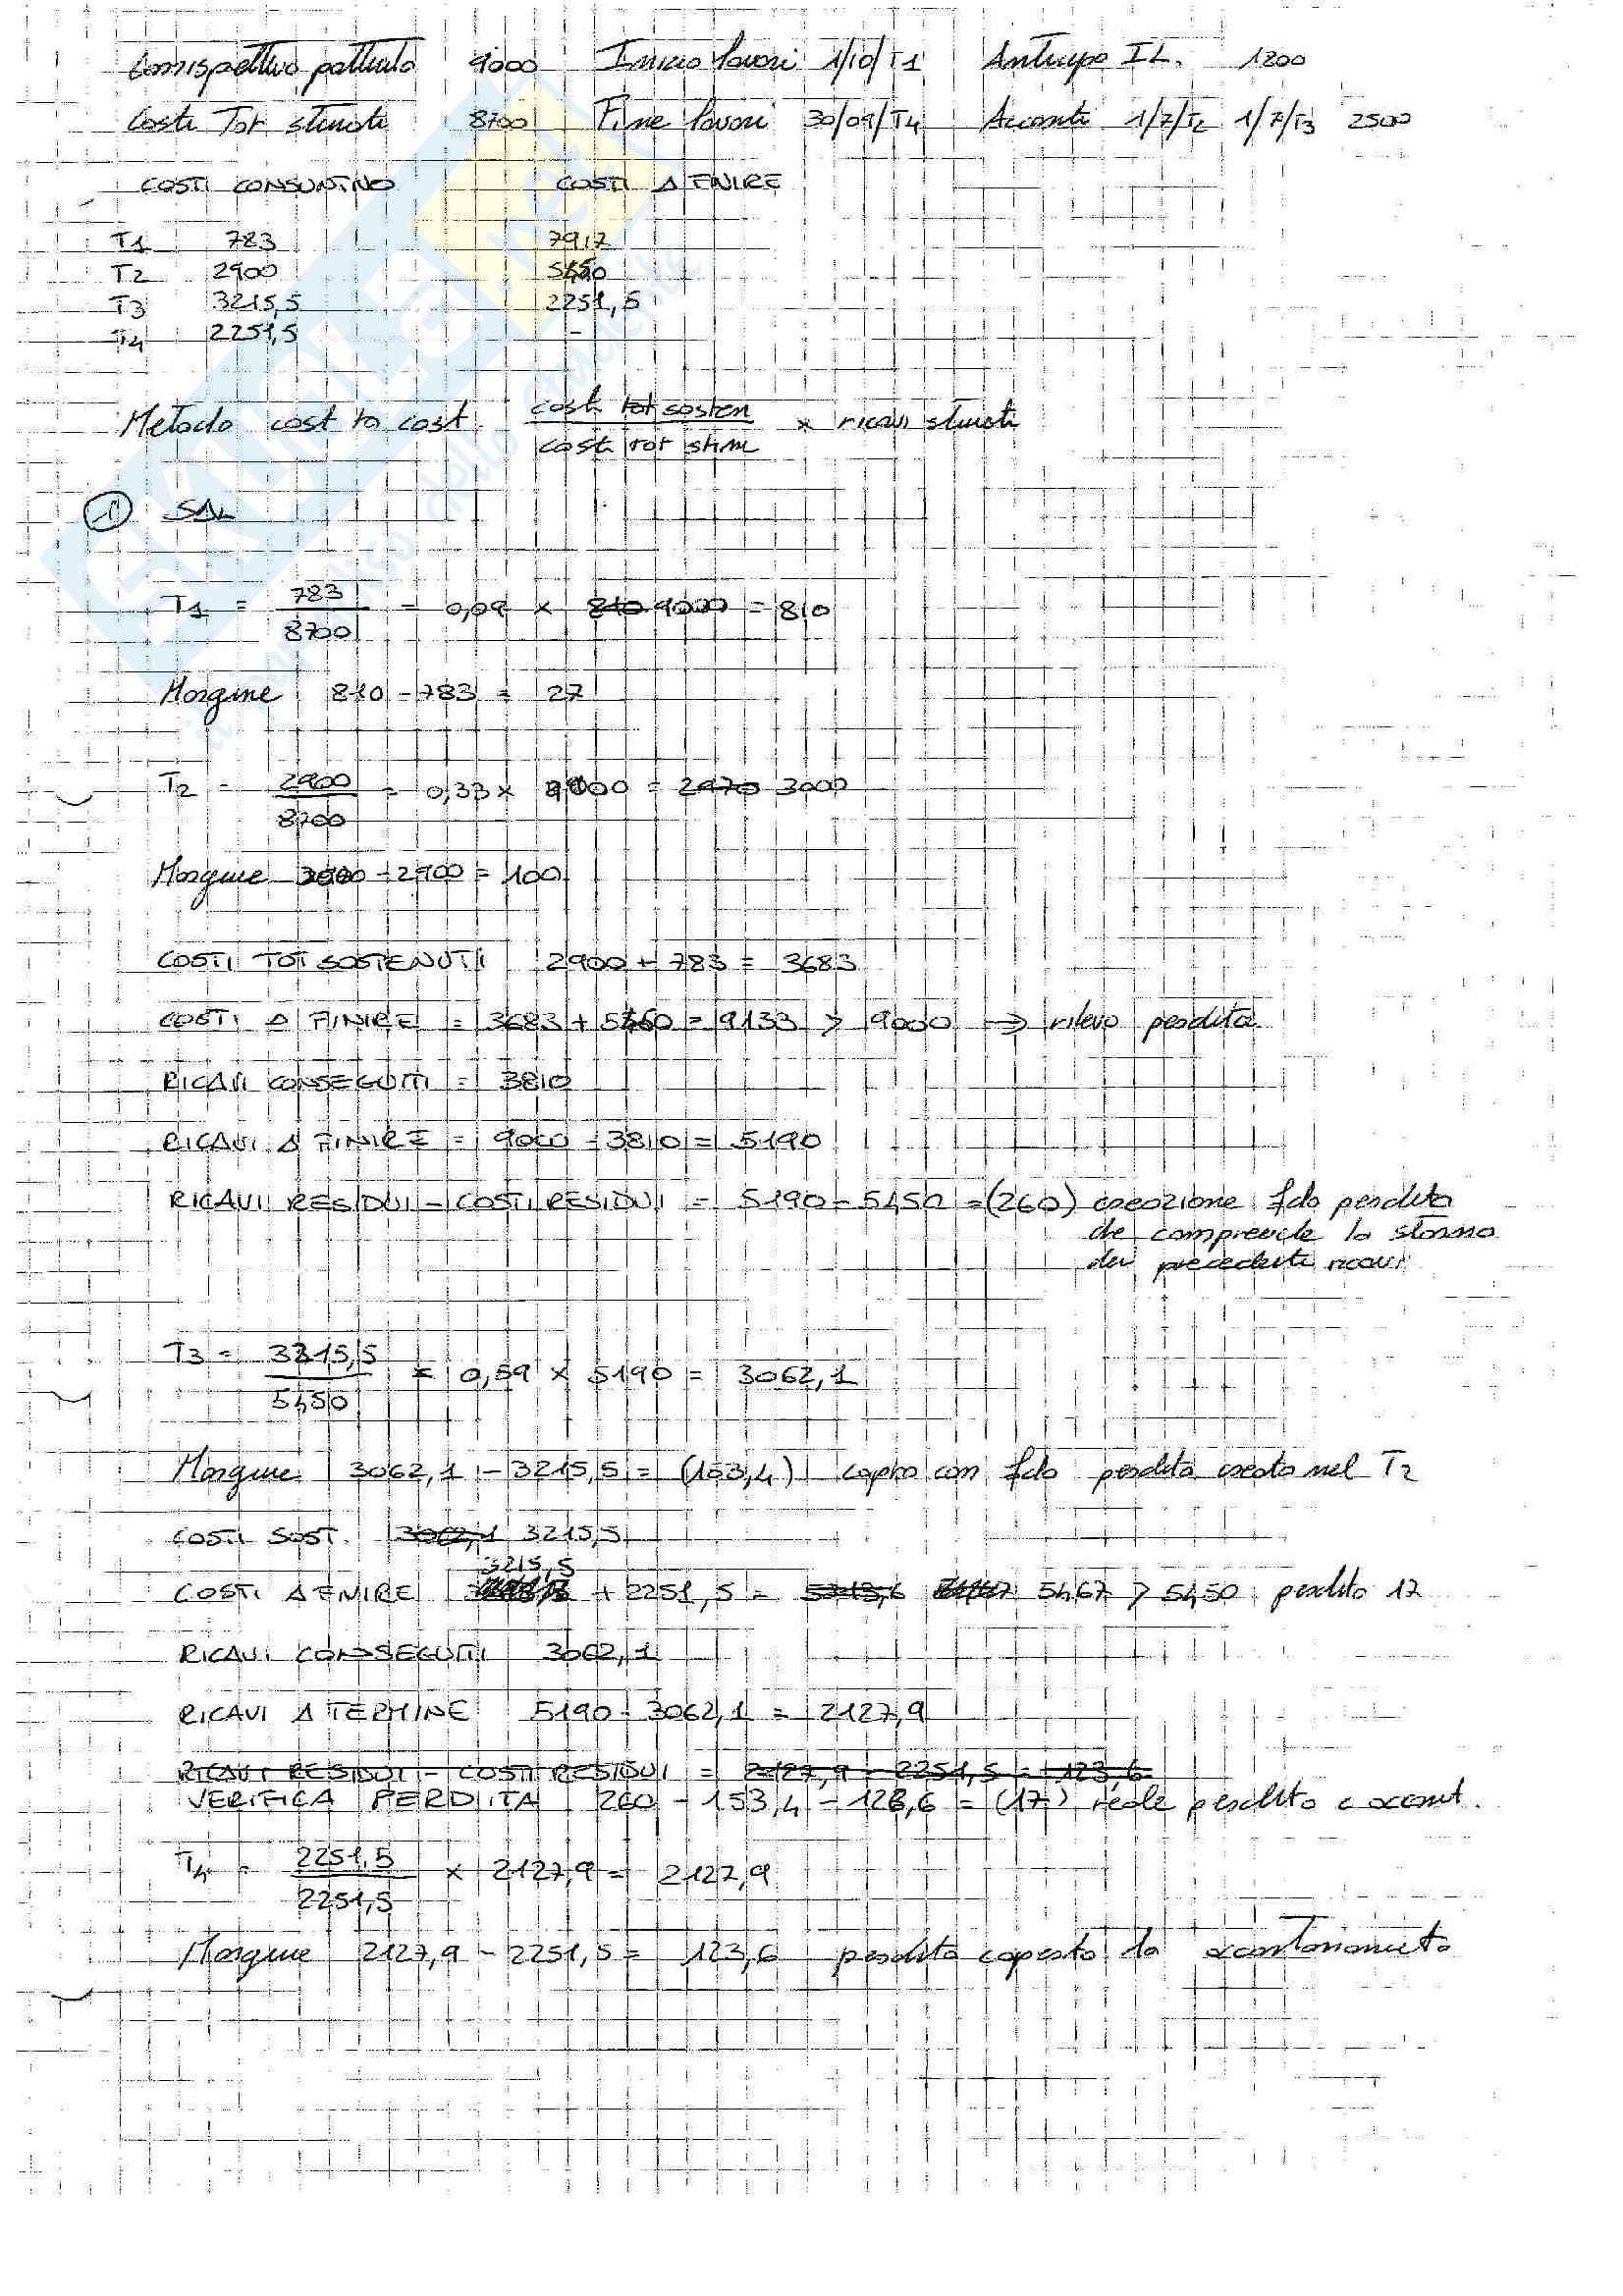 Corrispettivo pattuito 9000 Inizio lavori 1/10/T1 Anticipo I.L. 1200
Costi Tot stimati 8700 Fine lavori 30/09/T4 Acconti 1/7/T2 1/7/T3 2500
COSTI CONSUNTIVO COSTI A FINIRE
T1 783 7917
T2 2900 5450
T3 3215,5 2251,5
T4 2251,5 -
Metodo cost to cost costi tot sosten / costi tot stim × ricavi stimati
① SAL
T1 = 783 / 8700 = 0,09 × 810 9000 = 810
Margine 810 - 783 = 27
T2 = 2900 / 8700 = 0,33 × 9000 = 2970 3000
Margine 3000 - 2900 = 100
COSTI TOT SOSTENUTI 2900 + 783 = 3683
COSTI A FINIRE = 3683 + 5450 = 9133 > 9000 → rilevo perdita
RICAVI CONSEGUITI = 3810
RICAVI A FINIRE = 9000 - 3810 = 5190
RICAVI RESIDUI - COSTI RESIDUI = 5190 - 5450 = (260) creazione fdo perdita
che comprende lo storno
dei precedenti ricavi
T3 = 3215,5 / 5450 = 0,59 × 5190 = 3062,1
Margine 3062,1 - 3215,5 = (153,4) copro con fdo perdita creato nel T2
COSTI SOST. 3062,1 3215,5
COSTI A FINIRE 3215,5 + 2251,5 = 5313,6 5467 > 5450 perdita 17
RICAVI CONSEGUITI 3062,1
RICAVI A TERMINE 5190 - 3062,1 = 2127,9
RICAVI RESIDUI - COSTI RESIDUI = 2127,9 - 2251,5 = -123,6
VERIFICA PERDITA 260 - 153,4 - 123,6 = (17) reale perdita e accant.
T4 = 2251,5 / 2251,5 × 2127,9 = 2127,9
Margine 2127,9 - 2251,5 = 123,6 perdita coperta da accantonamento